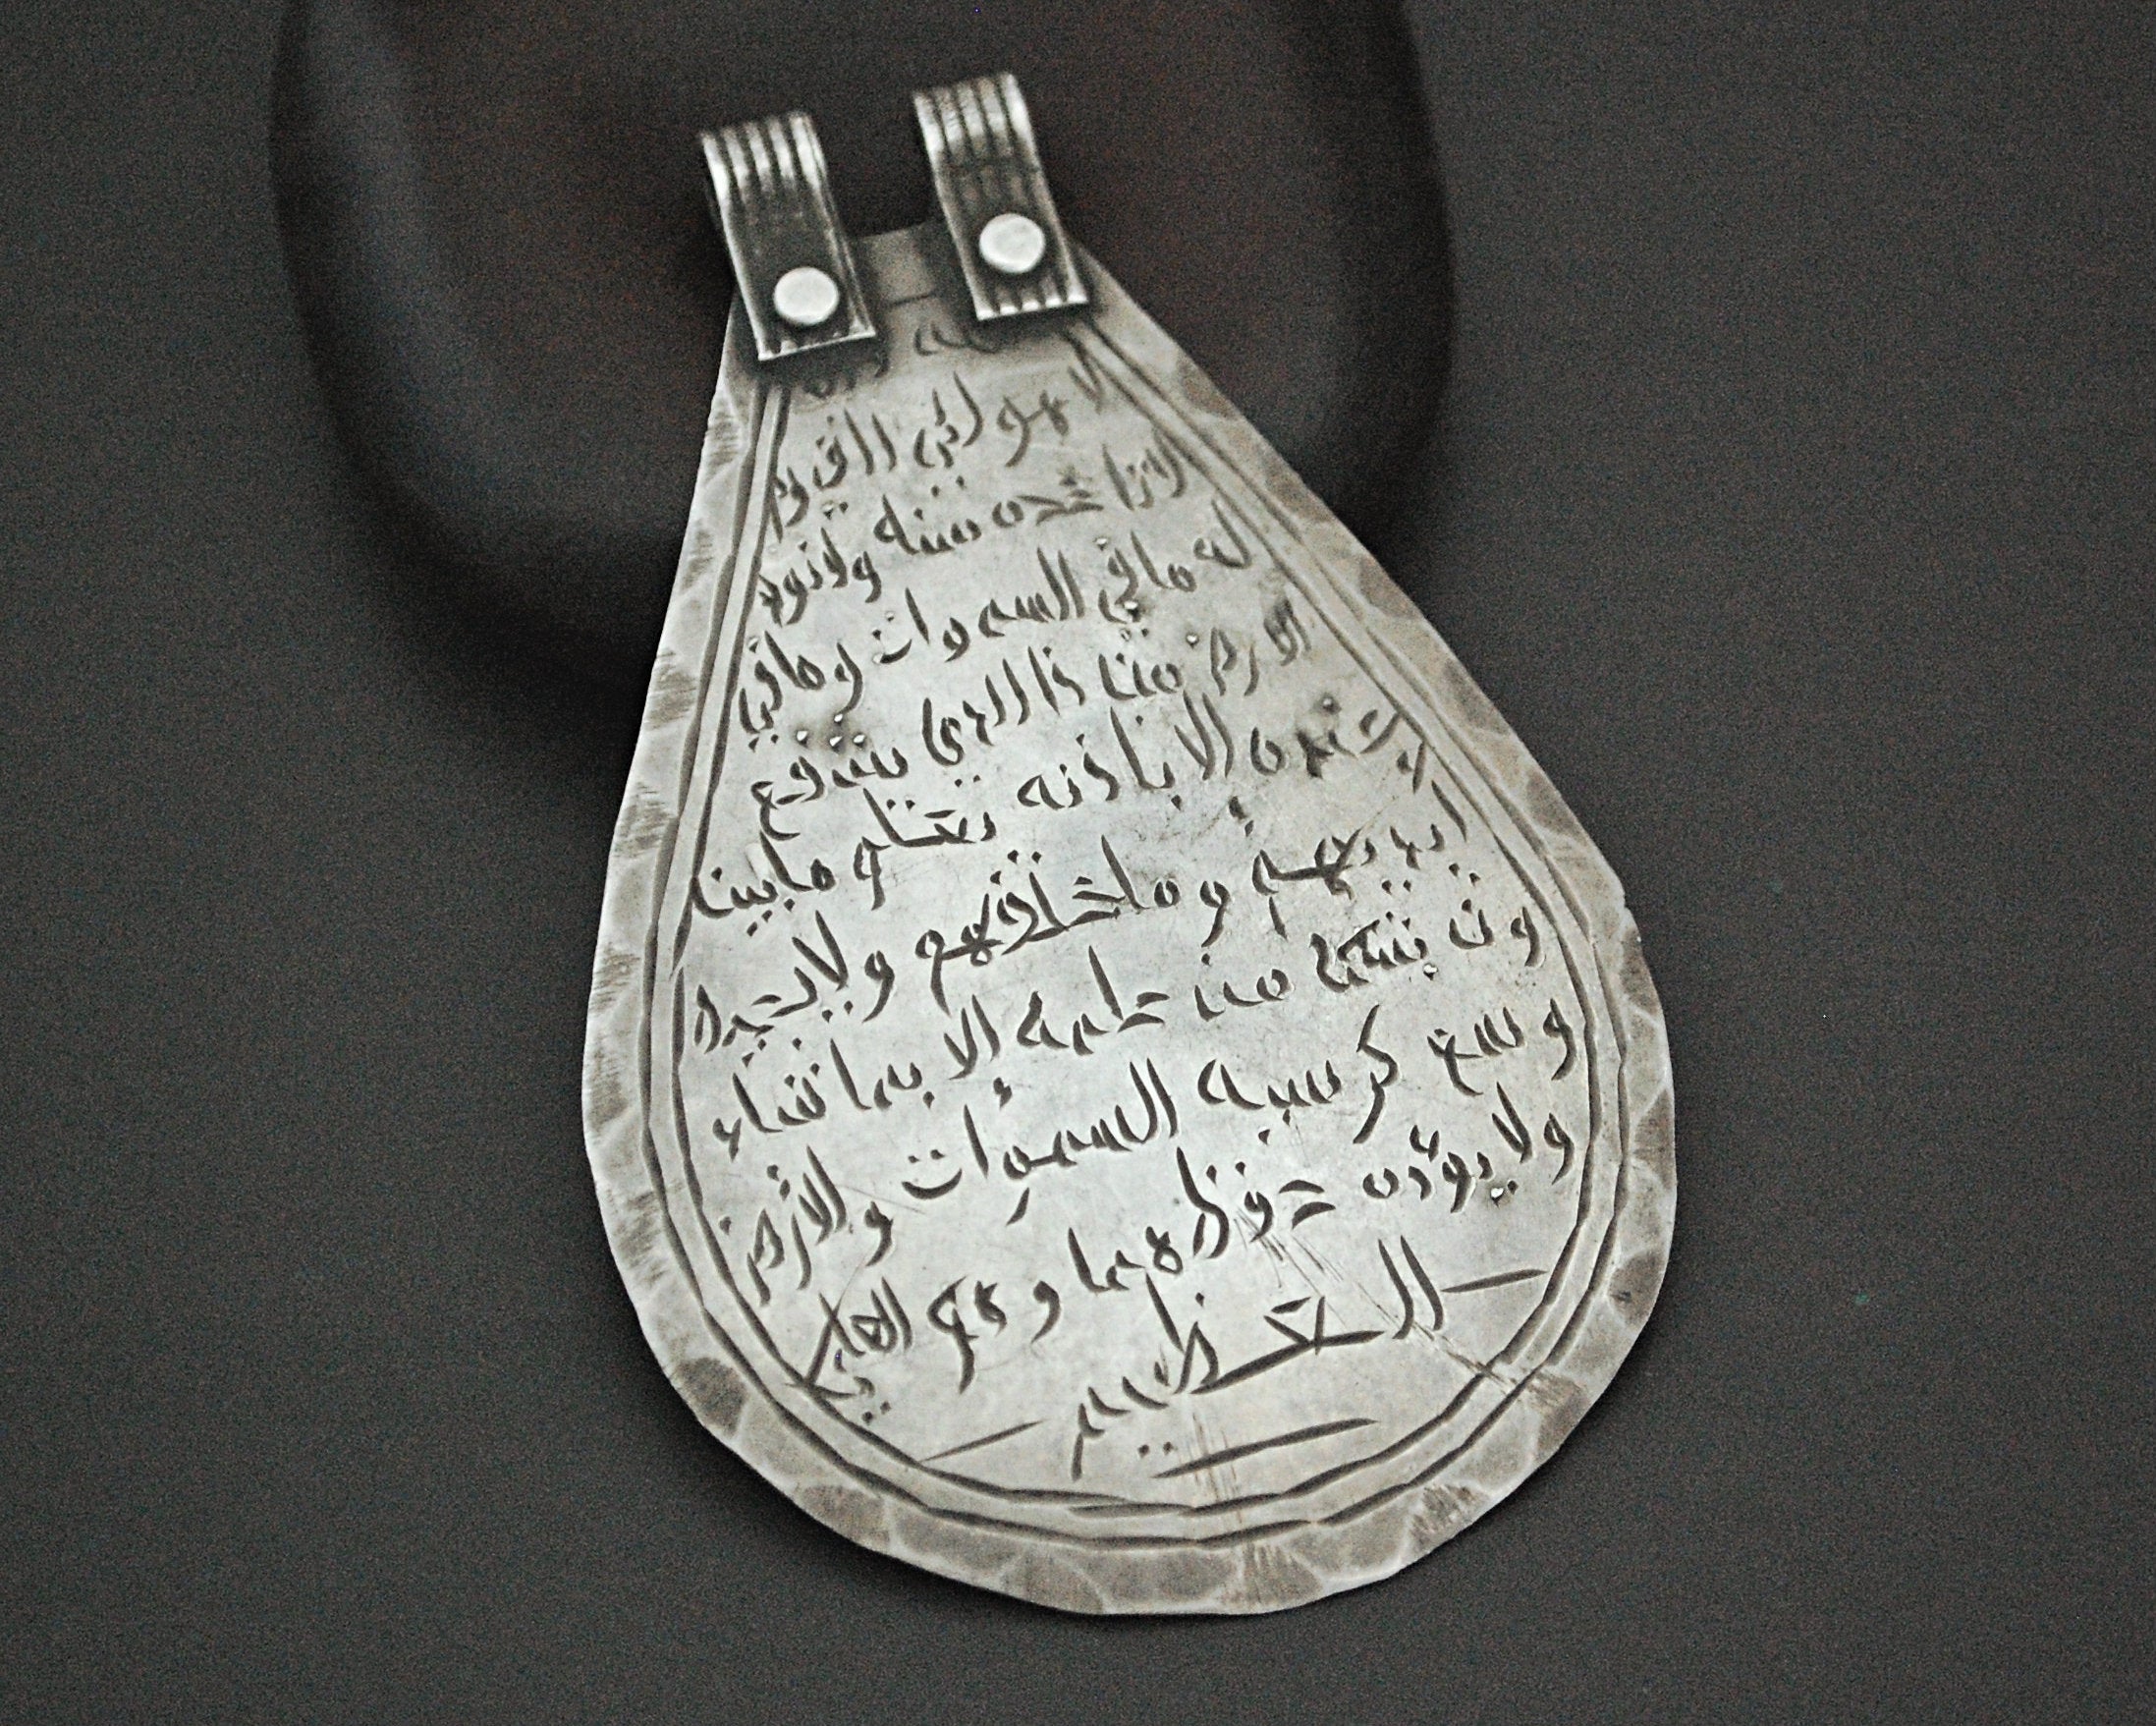 لا هو الحي القيوم
لا تا خده سنه ولا نوم
له ما في السموات وما في
الارض منذا الدي يشفع
عنده الا باذنه يعلم ما بين
ايديهم وما خلفهم ولا يحيط
ون بشي من علمه الا بما شاء
وسع كرسيه السمؤات والأرض
ولا يوئده حفظهما وهو العلي
العظيم